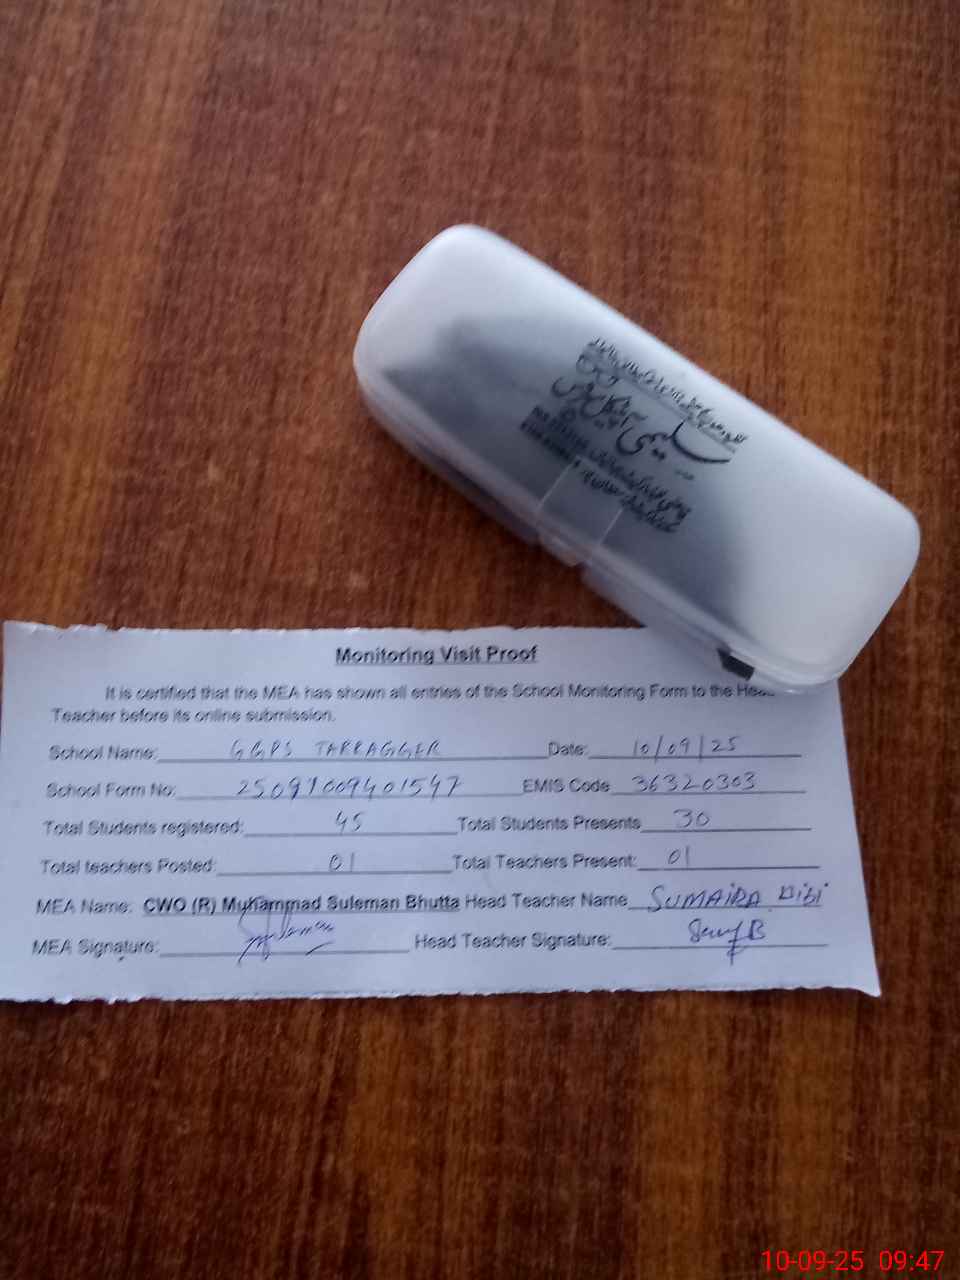 سلیمی آپٹیکل سروس
Monitoring Visit Proof
It is certified that the MEA has shown all entries of the School Monitoring Form to the Hea
Teacher before its online submission.
School Name: GGPS TARRAGGER Date: 10/09/25
School Form No: EMIS Code 36320303
Total Students registered: 45 Total Students Presents 30
Total teachers Posted: 01 Total Teachers Present: 01
MEA Name: CWO (R) Muhammad Suleman Bhutta Head Teacher Name SUMAIRA BIBI
MEA Signature: Head Teacher Signature:
10-09-25 09:47